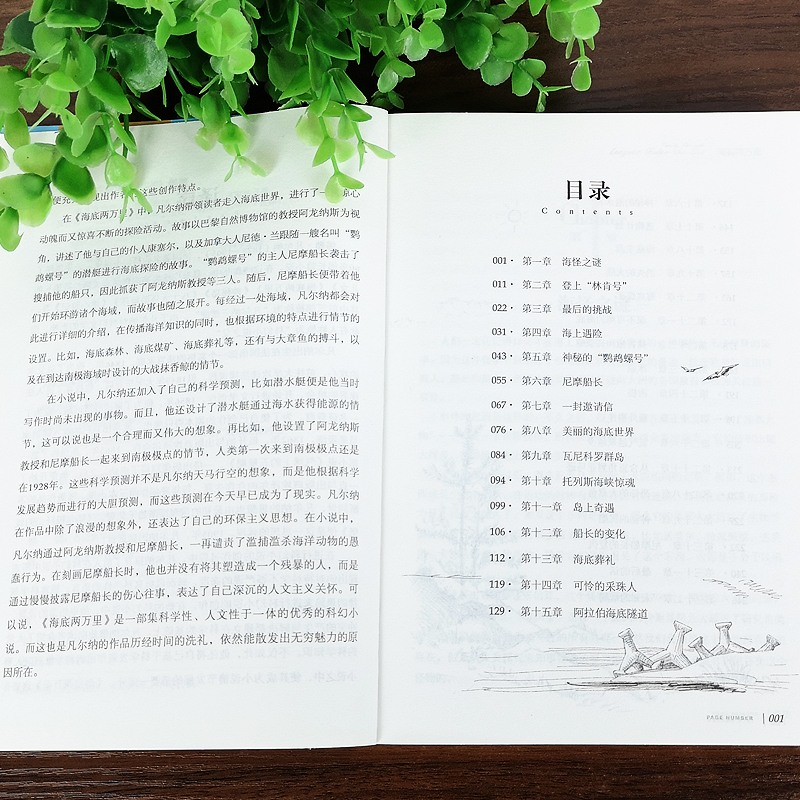 使充分展现出作者的这些创作特点。
在《海底两万里》中，凡尔纳带领读者走入海底世界，进行了一场惊心
动魄而又惊喜不断的探险活动。故事以巴黎自然博物馆的教授阿龙纳斯为视
角，讲述了他与自己的仆人康塞尔，以及加拿大人尼德·兰跟随一艘名叫“鹦
鹉螺号”的潜艇进行海底探险的故事。“鹦鹉螺号”的主人尼摩船长袭击了
搜捕他的船只，因此抓获了阿龙纳斯教授等三人。随后，尼摩船长便带着他
们开始环游诸个海域，而故事也随之展开。每经过一处海域，凡尔纳都会对
此进行详细的介绍，在传播海洋知识的同时，也根据环境的特点进行情节的
设置。比如，海底森林、海底煤矿、海底葬礼等，还有与大章鱼的搏斗，以
及在到达南极海域时设计的大战抹香鲸的情节。
在小说中，凡尔纳还加入了自己的科学预测，比如潜水艇便是他当时
写作时尚未出现的事物。而且，他还设计了潜水艇通过海水获得能源的情
节，这可以说也是一个合理而又伟大的想象。再比如，他设置了阿龙纳斯
教授和尼摩船长一起来到南极极点的情节，人类第一次来到南极极点还是
在1928年。这些科学预测并不是凡尔纳天马行空的想象，而是他根据科学
发展趋势而进行的大胆预测，而这些预测在今天早已成为了现实。凡尔纳
在作品中除了浪漫的想象外，还表达了自己的环保主义思想。在小说中，
凡尔纳通过阿龙纳斯教授和尼摩船长，一再谴责了滥捕滥杀海洋动物的愚
蠢行为。在刻画尼摩船长时，他也并没有将其塑造成一个残暴的人，而是
通过慢慢披露尼摩船长的伤心往事，表达了自己深沉的人文主义关怀。可
以说，《海底两万里》是一部集科学性、人文性于一体的优秀的科幻小
说。而这也是凡尔纳的作品历经时间的洗礼，依然能散发出无穷魅力的原
因所在。
目录
Contents
001· 第一章 海怪之谜
011· 第二章 登上“林肯号”
022· 第三章 最后的挑战
031· 第四章 海上遇险
043· 第五章 神秘的“鹦鹉螺号”
055· 第六章 尼摩船长
067· 第七章 一封邀请信
076· 第八章 美丽的海底世界
084· 第九章 瓦尼科罗群岛
094· 第十章 托列斯海峡惊魂
099· 第十一章 岛上奇遇
106· 第十二章 船长的变化
112· 第十三章 海底葬礼
119· 第十四章 可怜的采珠人
129· 第十五章 阿拉伯海底隧道
PAGE NUMBER 001